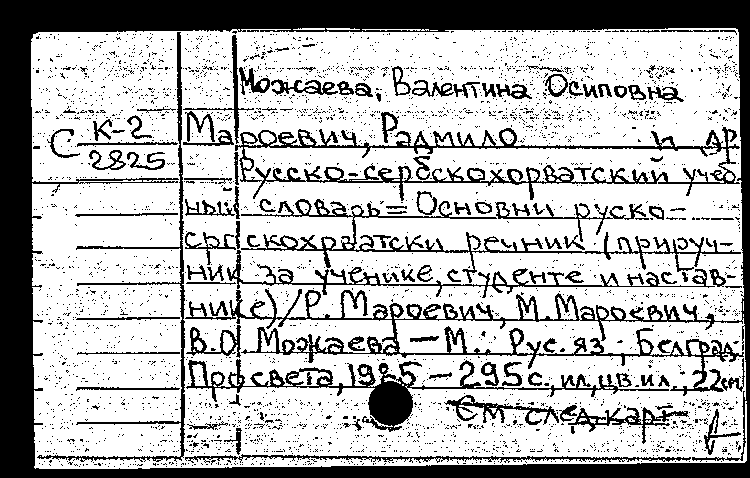 Можаева, Валентина Осиповна
С К-2
2825
Мароевич, Радмило и др
Русско-сербскохорватский учеб
ный словарь = Основни руско-
српскохрватски речник (прируч-
ник за ученике, студенте и настав-
нике) / Р. Мароевич, М. Мароевич,
В.О. Можаева — М.: Рус. яз.; Белград
Просвета, 1985. — 295 с., ил, цв. ил.; 22 см
См. след. карт